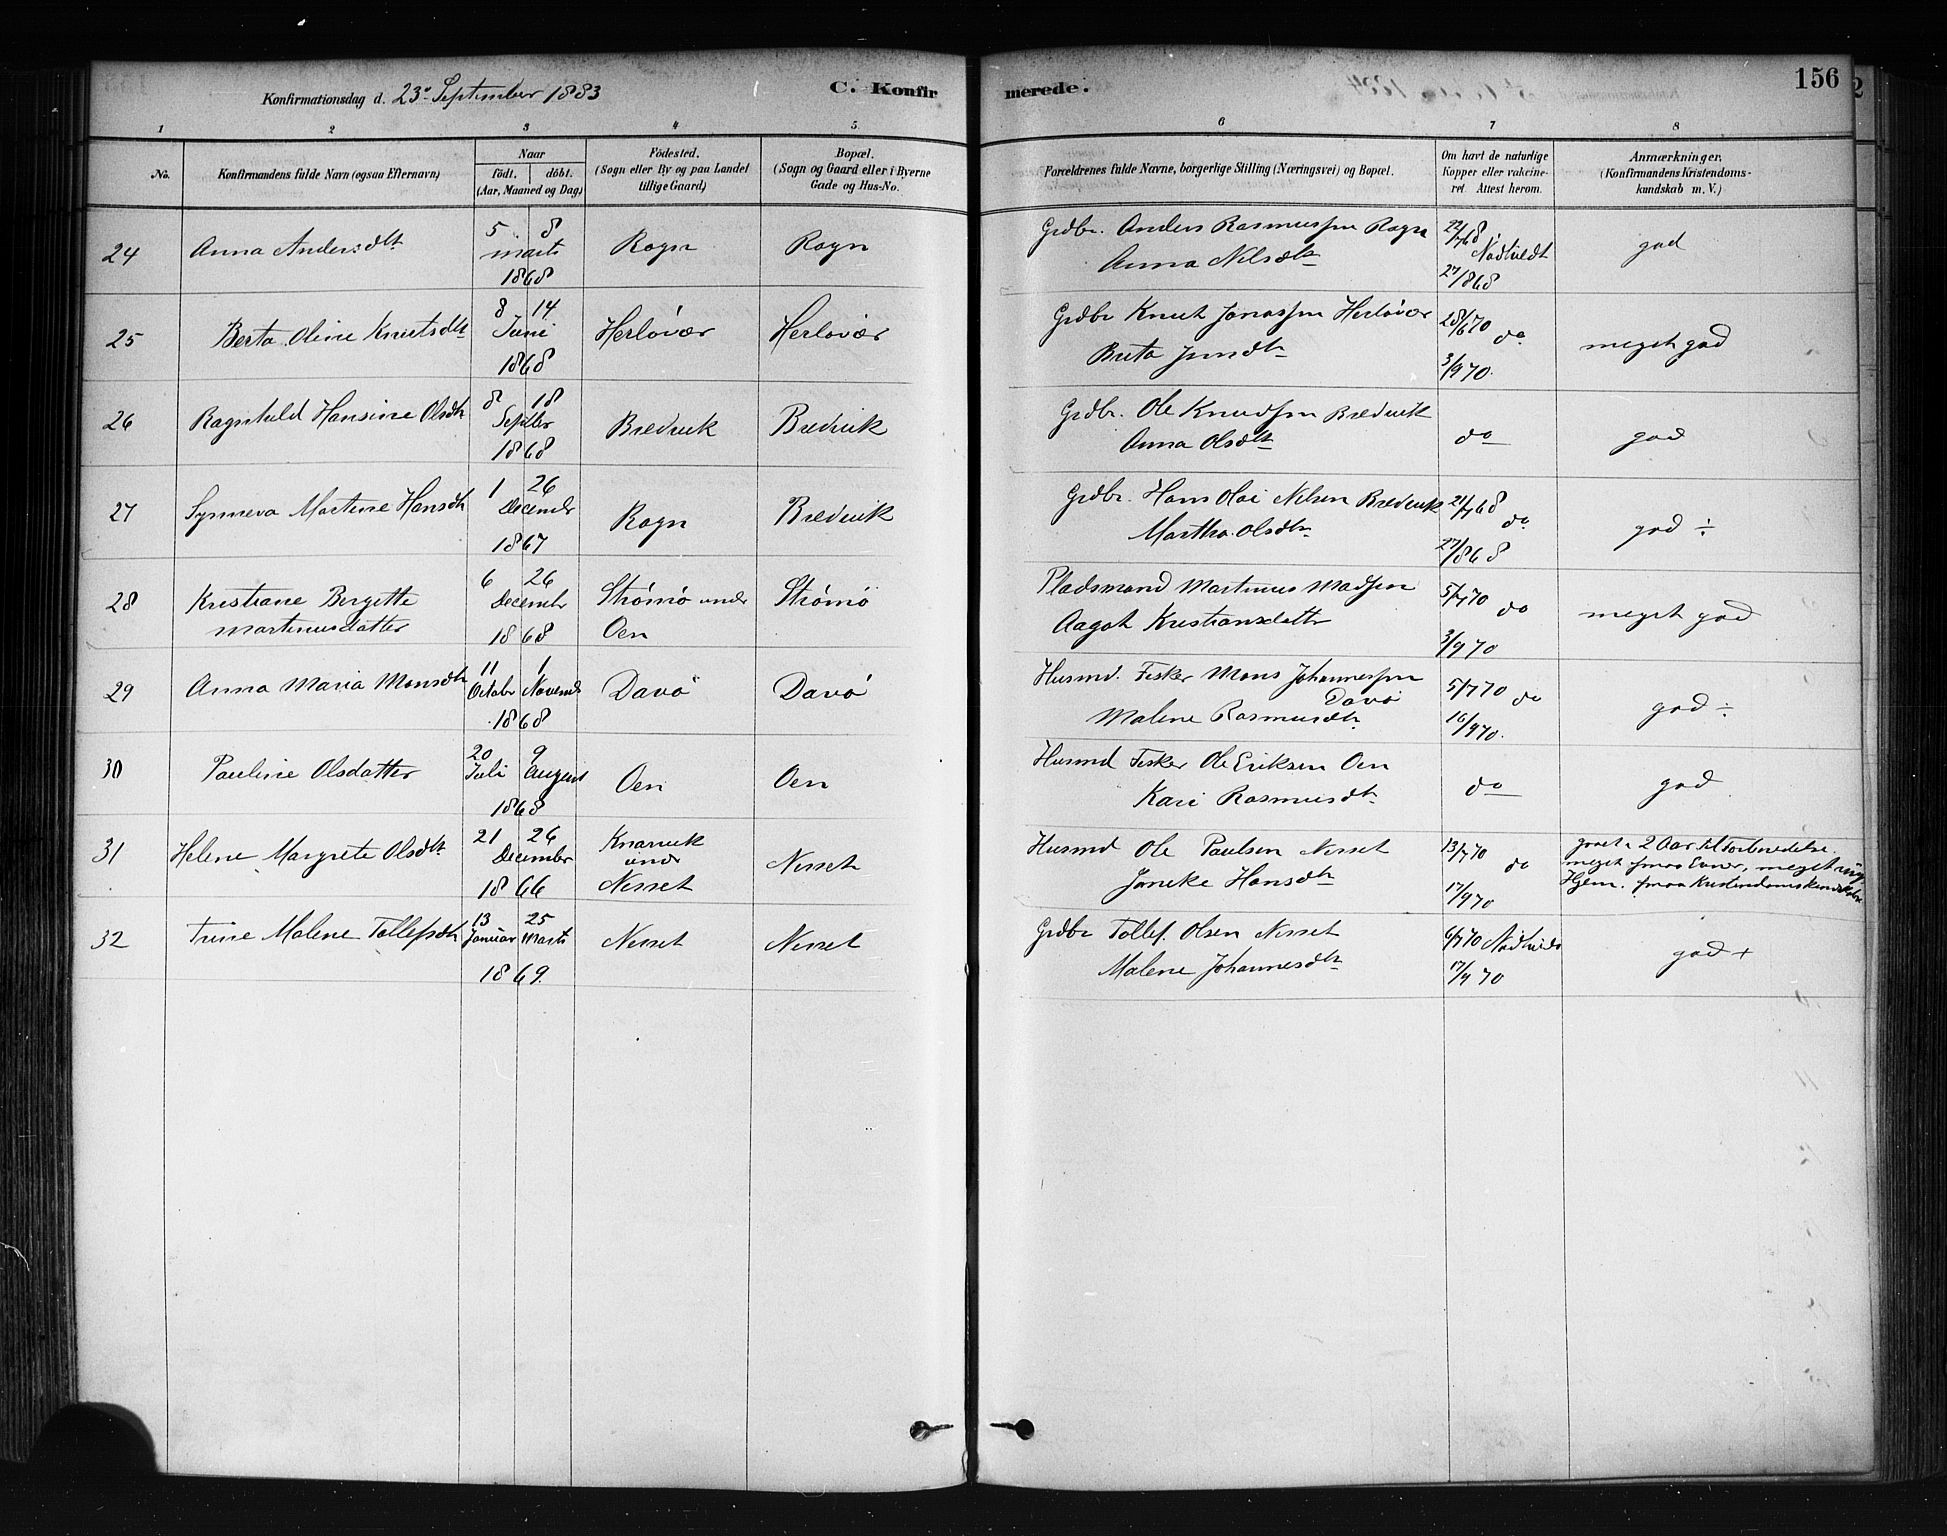 Konfirmationsdag d. 23de September 1883
C. Konfir
merede.
156
1 2 3 4 5 6 7 8
No.
Konfirmandens fulde Navn (ogsaa Efternavn)
Naar
födt. döbt.
(Aar, Maaned og Dag)
Födested.
(Sogn eller By og paa Landet
tillige Gaard)
Bopæl.
(Sogn og Gaard eller i Byerne
Gade og Hus-No.
Forældrenes fulde Navne, borgerlige Stilling (Næringsvei) og Bopæl.
Om havt de naturlige
Kopper eller vakcine-
ret. Attest herom.
Anmærkninger.
(Konfirmandens Kristendoms-
kundskab m. V.)
24 Anna Andersdtr
5 8
marts
1868
Rogn Rogn
Grdbr. Anders Rasmussen Rogn
Anna Nilsdtr
22/7 68 Nødtvedt
27/8 68
god
25 Berta Oline Knutsdtr
8 14
Juni
1868
Herløvær Herlovær
Grdbr Knut Jonassen Herløvær
Brita Jensdtr
28/6 70 do
3/9 70.
meget god
26 Ragnhild Hansine Olsdtr
8 18
Septbr
1868
Bredvik Bredvik
Grdbr. Ole Knudsen Bredvik
Anna Olsdtr
do
god
27 Synneva Martine Hansdtr
1 26
Decembr
1867
Rogn Bredvik
Grdbr. Hans Olai Nilsen Bredvik
Martha Olsdtr
21/7 68 do
27/8 68
god ÷
28 Kristiane Bergitte
Martinusdatter
6 26
Decembr
1868
Strömö under
Oen
Strömö
Pladsmand Martinus Madsen
Aagot Kristiansdatter
5/7 70 do
3/9 70
meget god
29 Anna Maria Monsdtr
11 1
Octobr Novembr
1868
Davö Davö
Husmd. Fisker Mons Johannessen
Davö
Malene Rasmusdtr
5/7 70 do
16/9 70.
god ÷
30 Pauline Olsdatter
20 9
Juli August
1868
Oen Oen
Husmd Fisker Ole Eriksen Oen
Kari Rasmusdtr
do
god
31 Helene Margrete Olsdtr
21 26
December
1866
Knarvik
under
Nesset
Nesset
Husmd Ole Paulsen Nesset
Janeke Hansdtr
13/7 70 do
17/9 70
gaaet 2 Aar til Forberedelse.
meget smaa Evner, meget
Hjem. smaa Kristendomskundskaber
32 Trine Malene Tollefsdtr
13 25
Januar Marts
1869.
Nesset Nesset
Grdbr Tollef Olsen Nesset
Malene Johannesdtr
6/7 70 Nødtvedt
17/9 70
god +